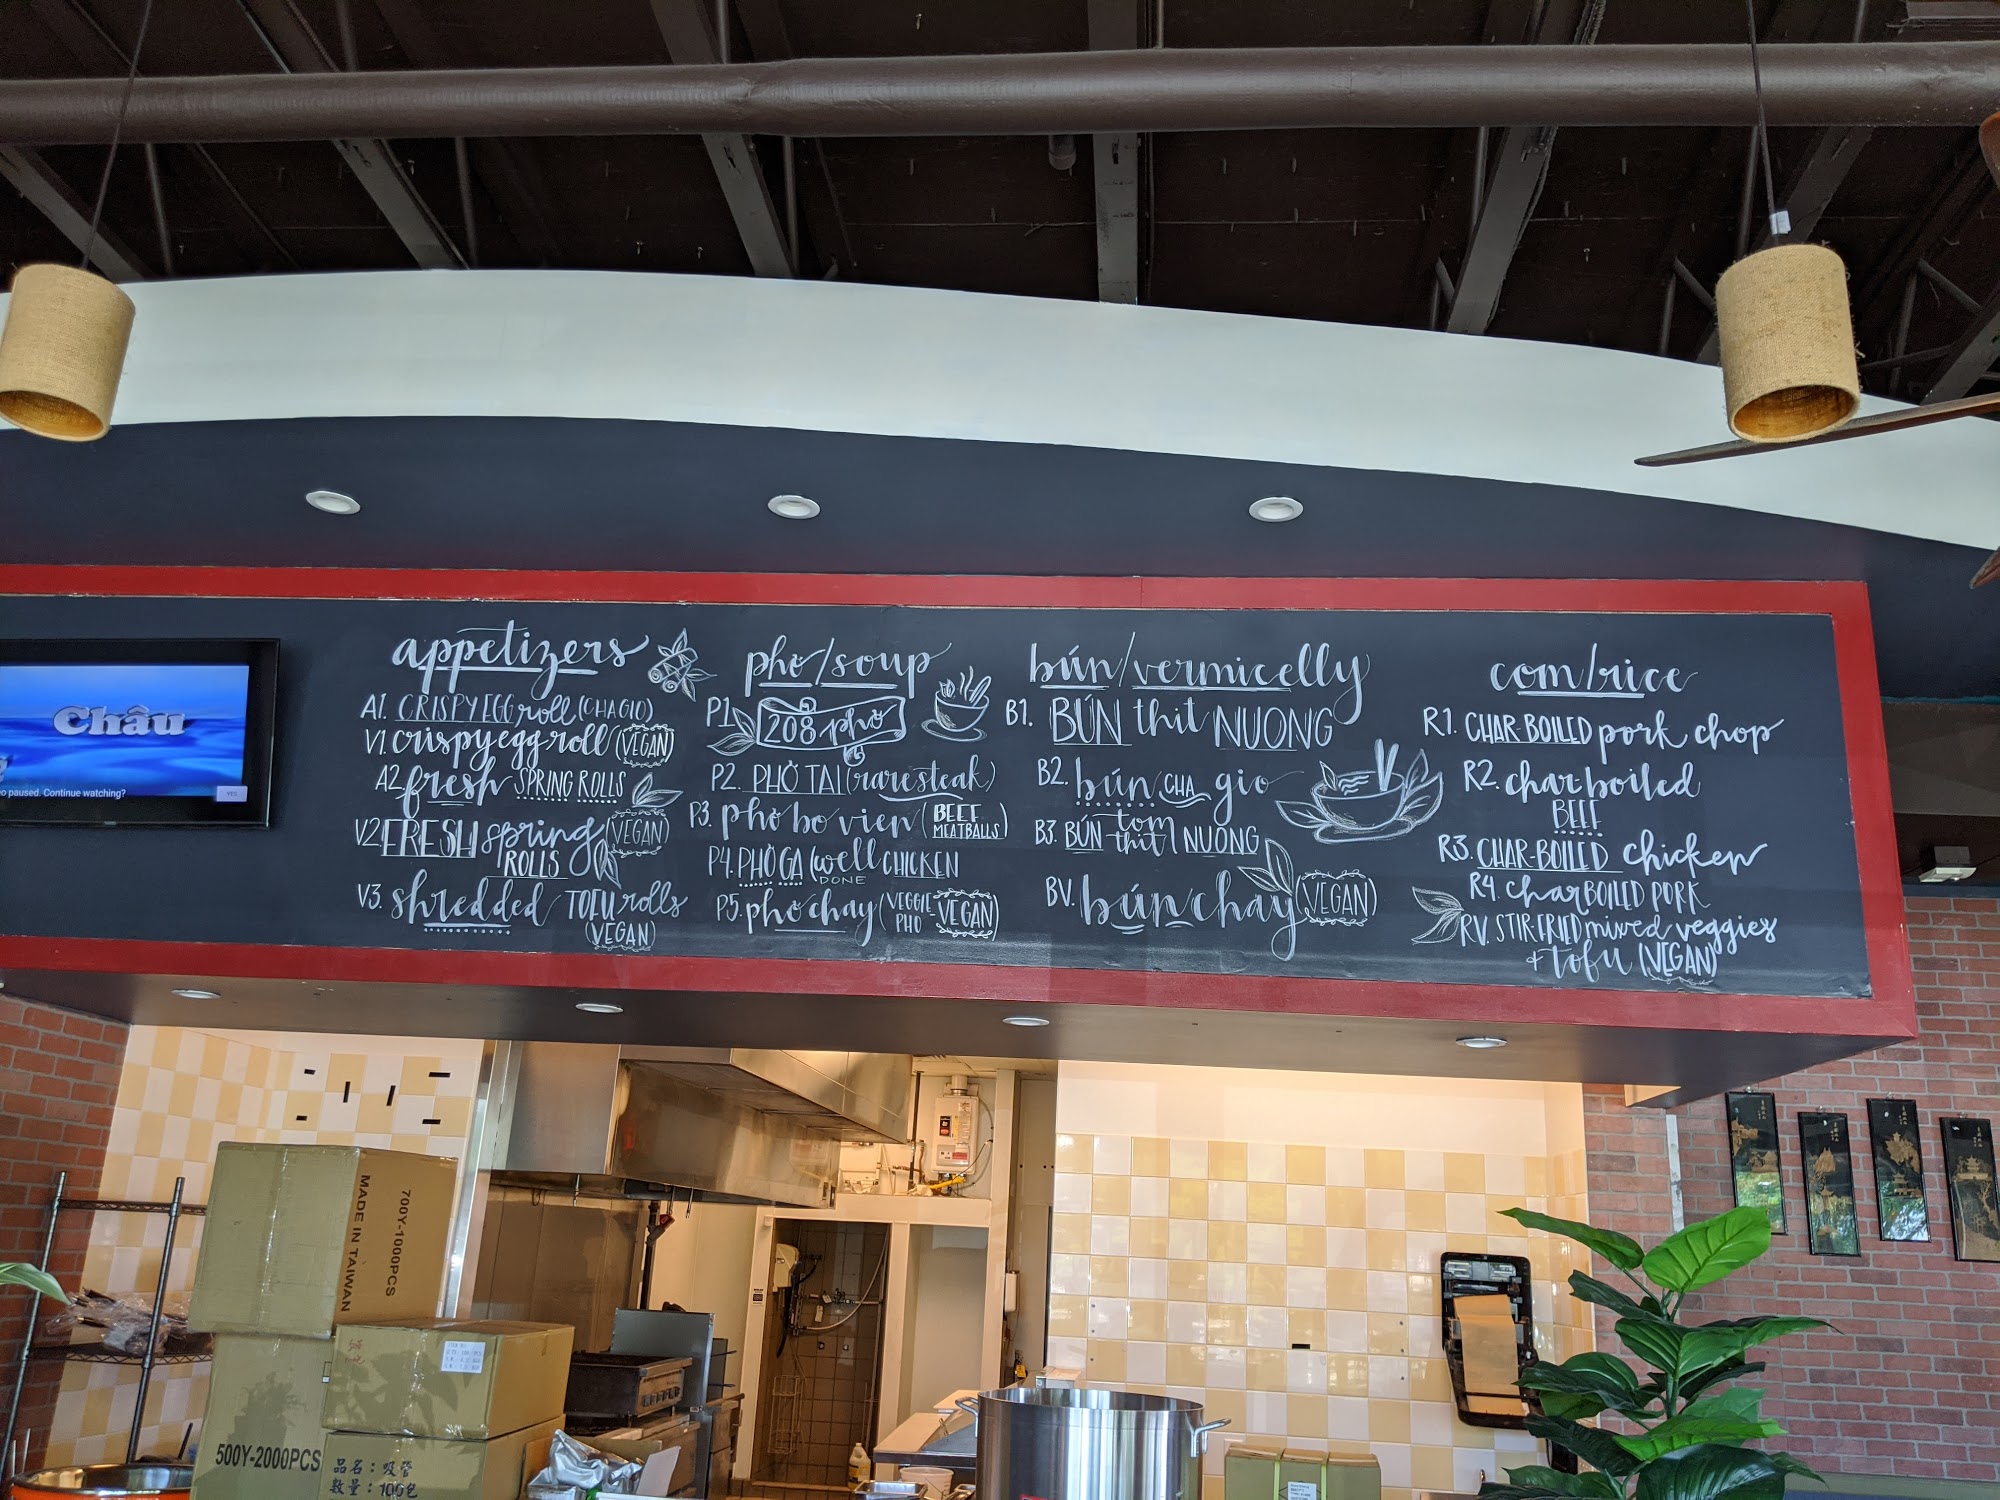 appetizers
A1. CRISPY EGG roll (CHA GIO)
V1. crispy egg roll (VEGAN)
A2. fresh SPRING ROLLS
V2. FRESH spring ROLLS (VEGAN)
V3. shredded TOFU rolls
(VEGAN)
phở/soup
P1. 208 phở
P2. PHỞ TAI (rare steak)
P3. phở bo vien (BEEF MEATBALLS)
P4. PHỞ GA (well DONE CHICKEN
P5. phở chay (VEGGIE PHO - VEGAN)
bún/vermicelly
B1. BÚN thit NUONG
B2. bún CHA gio
B3. BÚN tom thit NUONG
BV. bún chay (VEGAN)
com/rice
R1. CHAR-BOILED pork chop
R2. char-boiled
BEEF
R3. CHAR-BOILED chicken
R4. char BOILED PORK
RV. STIR-FRIED mixed veggies
+ tofu (VEGAN)
Châu
o paused. Continue watching?
YES
MADE IN TAIWAN
700Y-1000PCS
500Y-2000PCS
品名：吸管
數量：100包